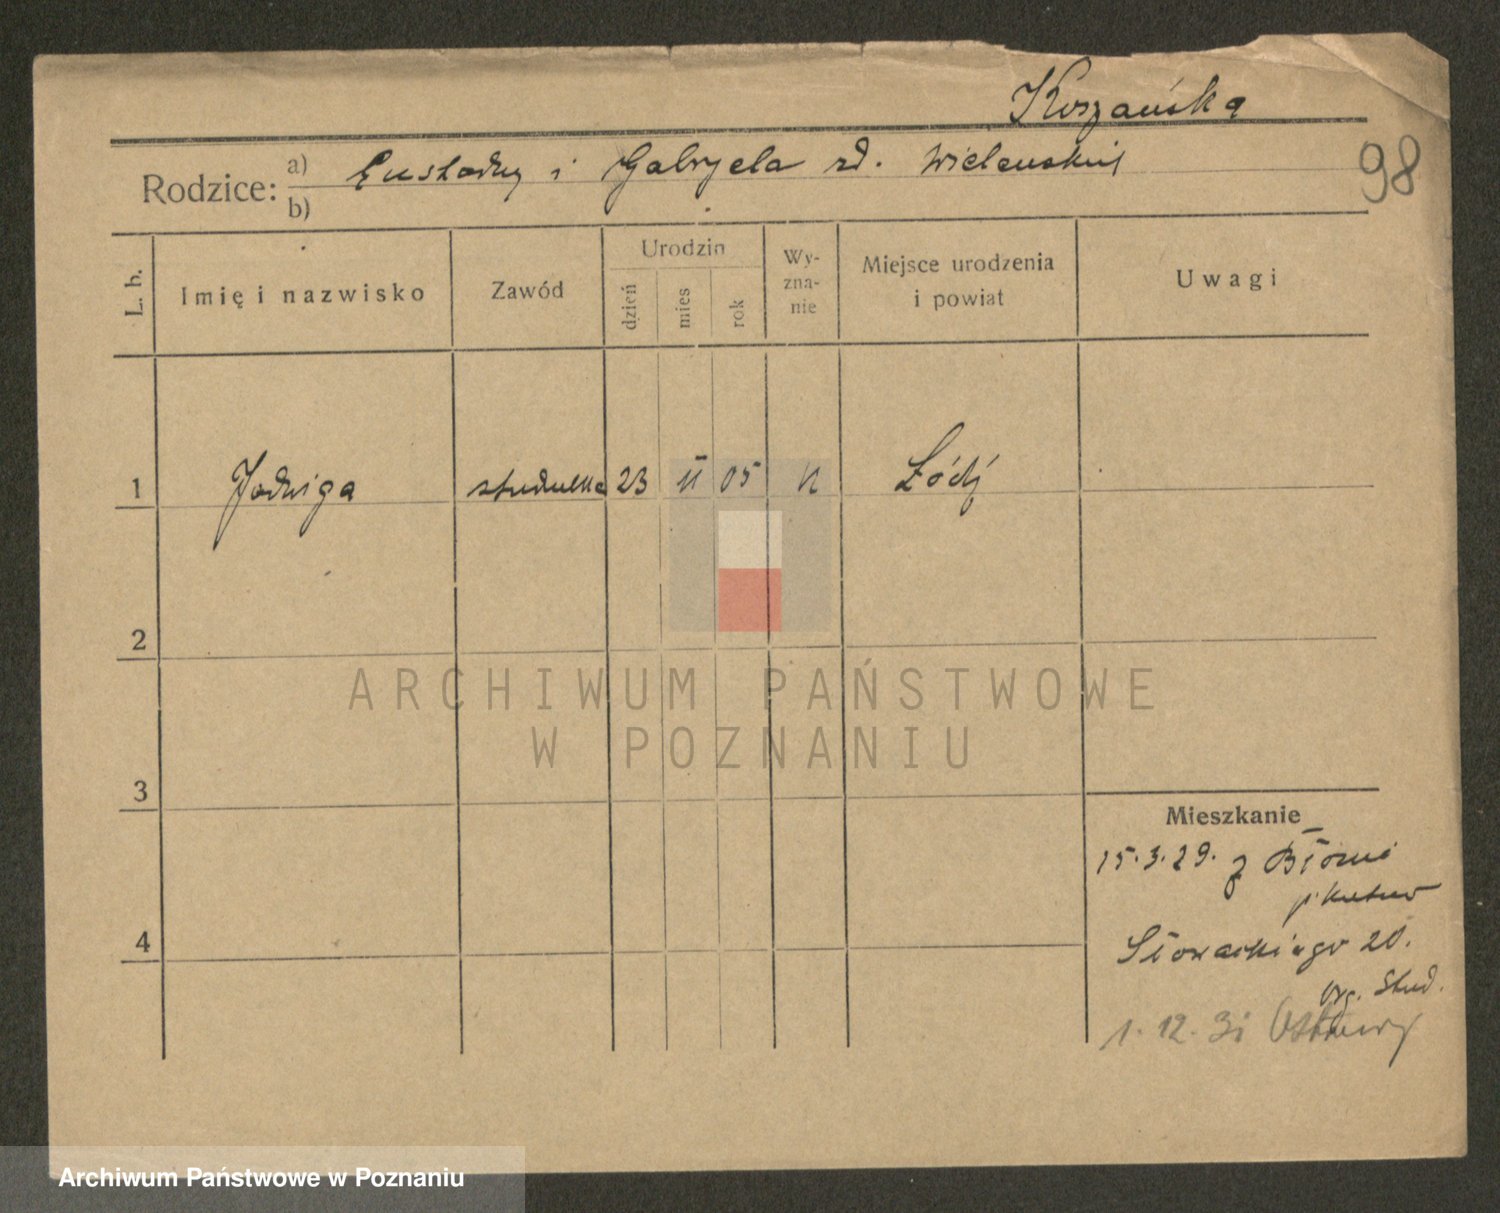 Koszańska
98
Rodzice: a) Eustachy i Gabryela zd. Wielauskiej
b)
L. b.
Imię i nazwisko
Zawód
Urodzin
dzień
mies
rok
Wy-
zna-
nie
Miejsce urodzenia
i powiat
Uwagi
1 Jadwiga studentka 23 II 05 Łódź
2
3
4
Mieszkanie
15.3.29. z Błonia
p. Kutno
Słowackiego 20.
1.12.31
ARCHIWUM PAŃSTWOWE
W POZNANIU
Archiwum Państwowe w Poznaniu